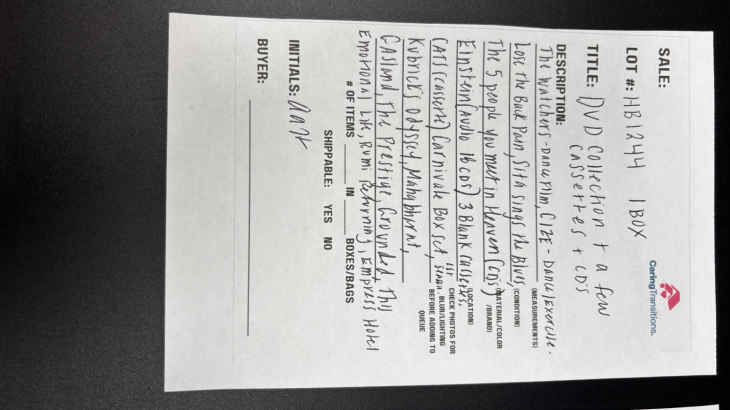 CaringTransitions.
SALE:
LOT #: HB1244 1 BOX
TITLE: DVD Collection + a few
Cassettes + CD's
DESCRIPTION: (MEASUREMENTS)
The Watchers - Dance Film, CIZE - Dance/Exercise.
Lose the Back Pain, Sita Sings the Blues, (CONDITION)
The 5 people you meet in Heaven (CD's) (MATERIAL/COLOR /BRAND)
Einstein (Audio 16 CDs) 3 Blank Cassettes, (LOCATION)
CATS (cassette) Carnivale Box set, 1st CHECK PHOTOS FOR BLUR/LIGHTING BEFORE ADDING TO QUEUE
Kubrick's Odyssey, Mahabharat,
Gasland, The Prestige, Grounded, This
Emotional Life, Rumi Returning, Empress Hotel
# OF ITEMS IN BOXES/BAGS
SHIPPABLE: YES NO
INITIALS:
BUYER: